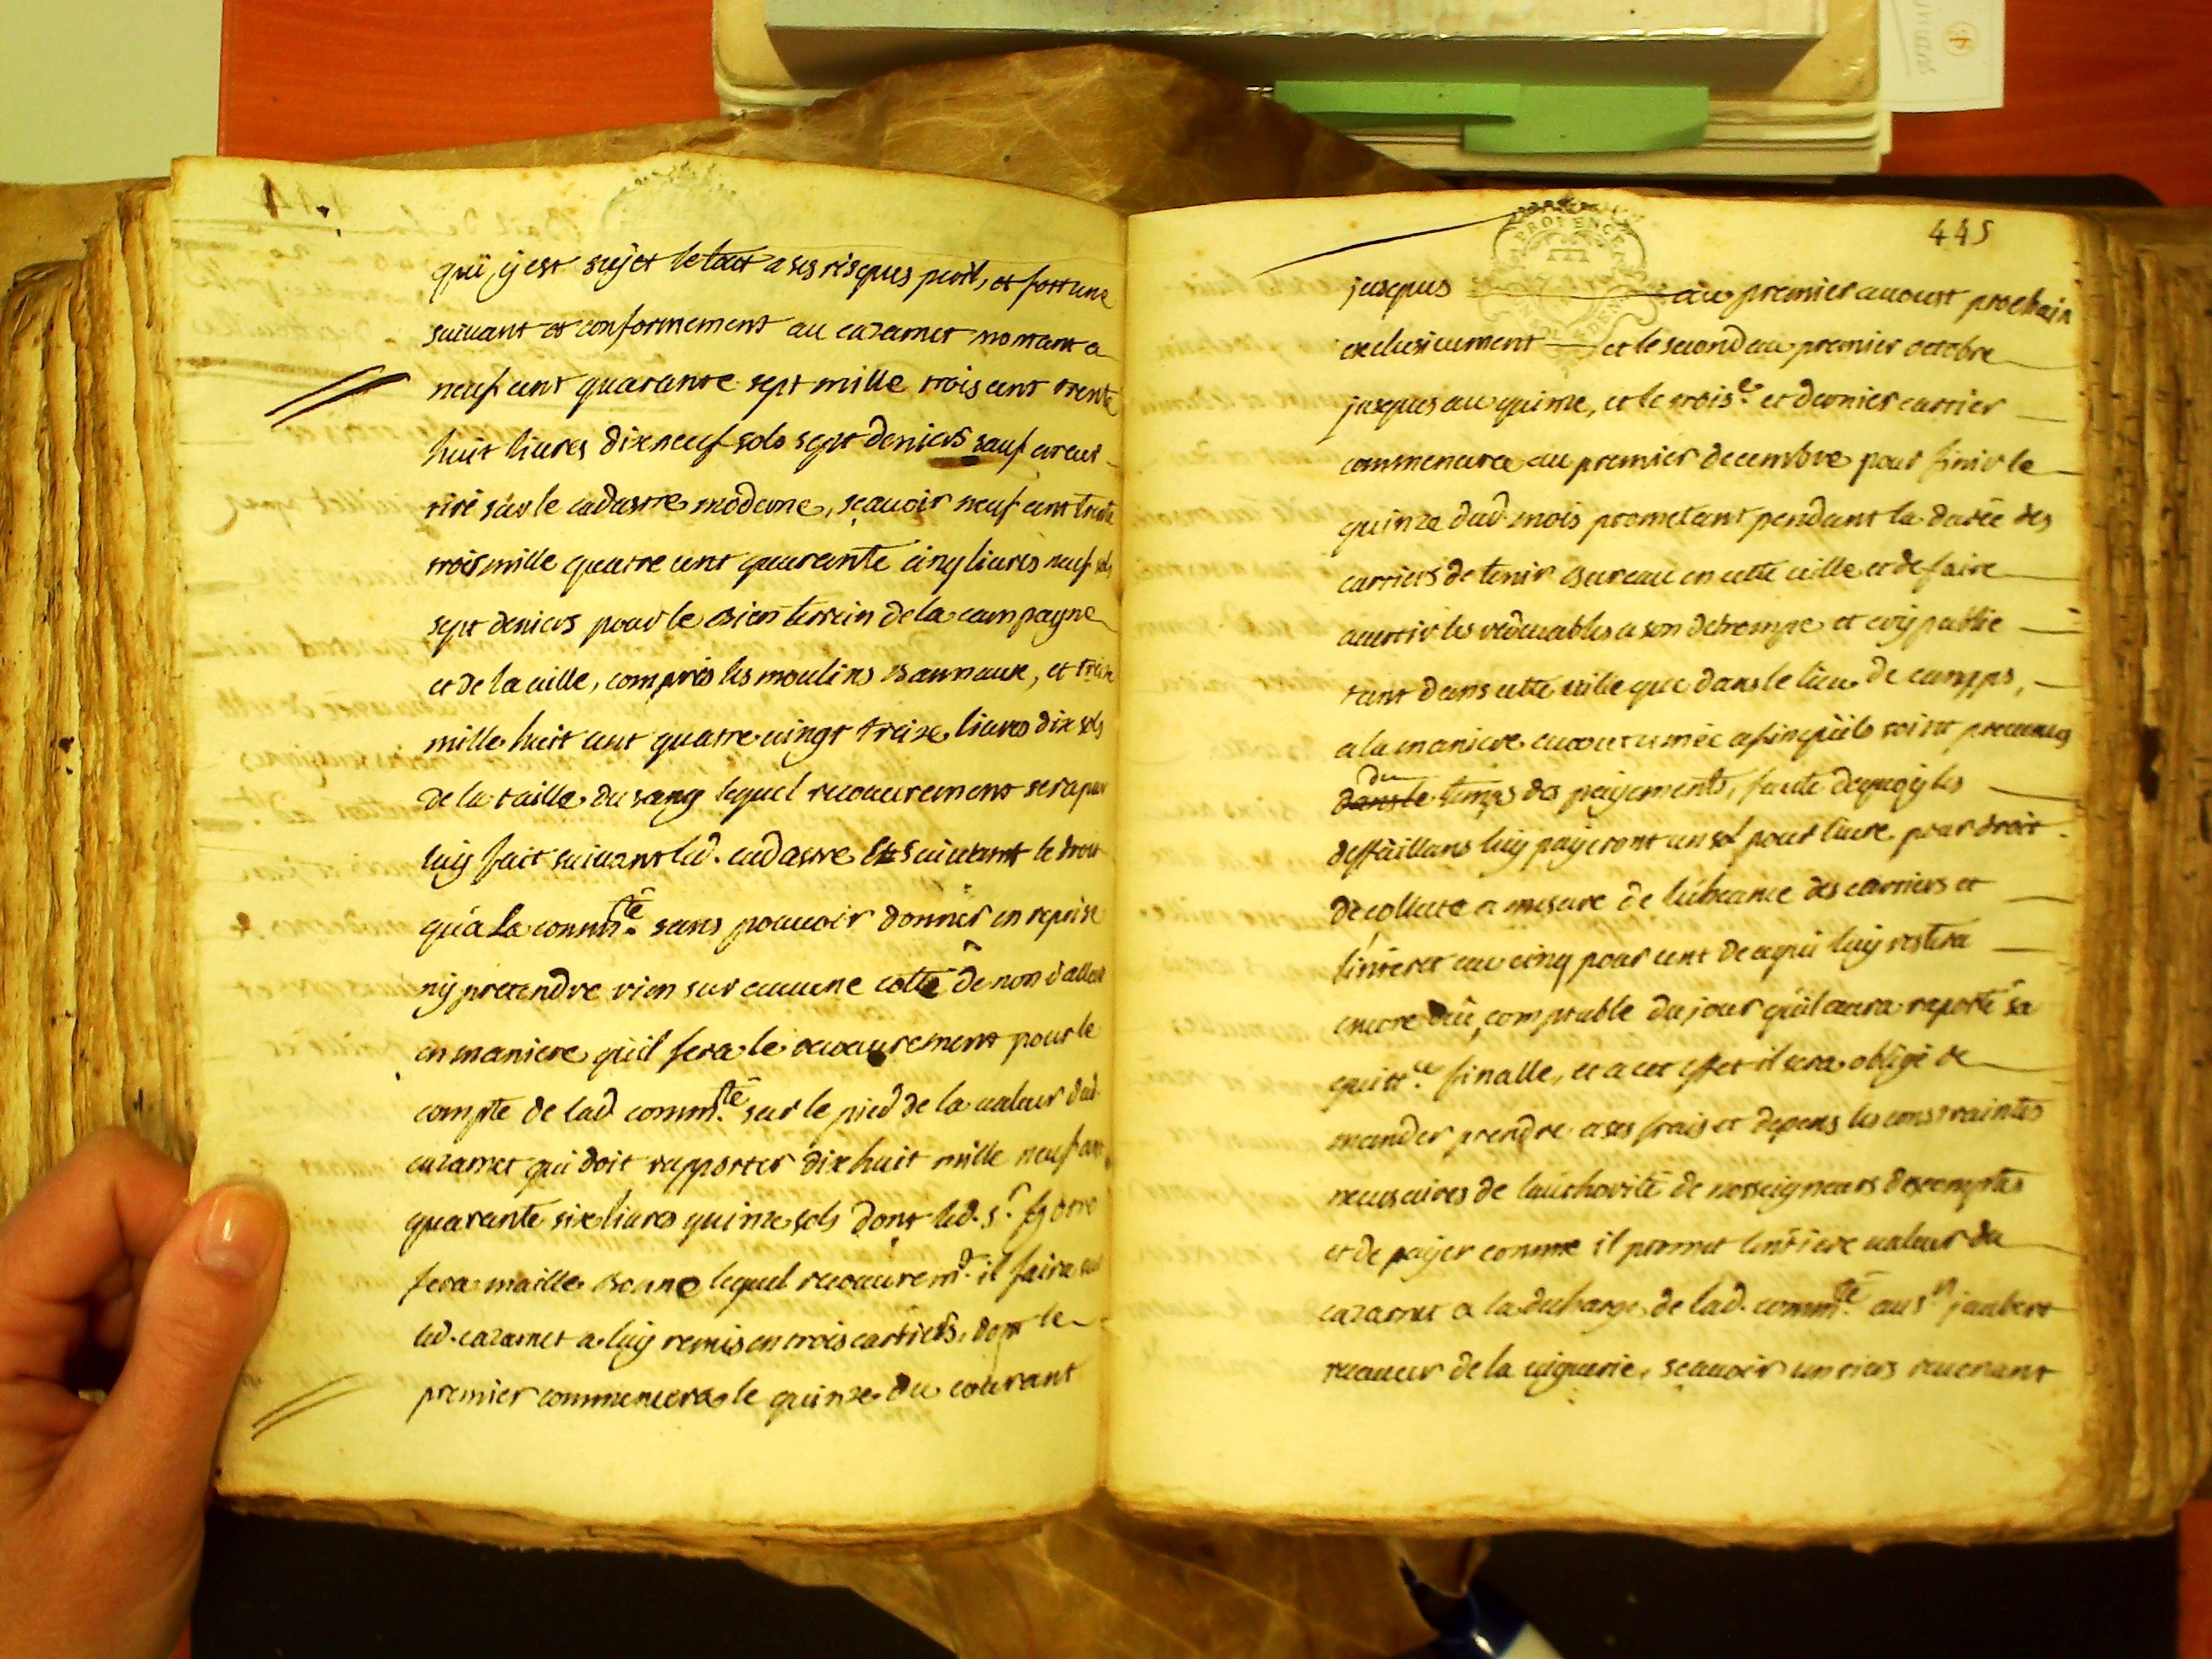 qui y est sujet le tout a ses risques peril, et fortune
suivant et conformement au cazarnet montant a
neuf cent quarante sept mille trois cent trente
huit livres dixneuf sols sept deniers sauf erreur
tiré sur le cadastre moderne, sçavoir neuf cent trente
trois mille quatre cent quarante cinq livres neuf sols
sept deniers pour le bien terrein de la campagne
et de la ville, compris les moulins bannaux, et treize
mille huit cent quatre vingt treize livres dix sols
de la taille du sang lequel recouvrement sera par
luy fait suivant led. cadastre et suivant le droit
qu'a la comm.té sans pouvoir donner en reprise
ny pretendre rien sur aucune cotte de non valleur
en maniere qu'il fera le recouvrement pour le
compte de lad. comm.té sur le pied de la valeur dud.
cazarnet qui doit rapporter dixhuit mille neuf cent
quarante six livres quinze sols dont led. s.r
fera maille bonne lequel recouvrem.t il faira sur
led. cazarnet a luy remis en trois cartiers, dont le
premier commencera le quinze du courant
445
PROVENCE
jusques au premier aoust prochain
exclusivement et le second au premier octobre
jusques au quinze, et le trois.e et dernier cartier
commencera au premier decembre pour finir le
quinze dud. mois prometant pendant la durée des
cartiers de tenir bureau en cette ville et de faire
avertir les redevables a son detrompe et cry public
tant dans cette ville que dans le lieu de campps,
a la maniere accoutumée afinqu'ils soint prevenus
du
dans le temps des payements, faute dequoy les
deffaillans luy payeront un sol pour livre pour droit
de collecte a mesure de l'echeance des cartiers et
l'interet au cinq pour cent de ce qui luy restera
encore dû, comptable du jour qu'il aura raporté sa
quitt.ce finalle, et a cet effet il sera obligé de
mander prendre a ses frais et depens les constraintes
necessaires de l'authorité de nosseigneurs des comptes
et de payer comme il promet l'entiere valeur du
cazarnet a la decharge de lad. comm.té au s.r jaubert
receveur de la viguerie, sçavoir un tiers revenant